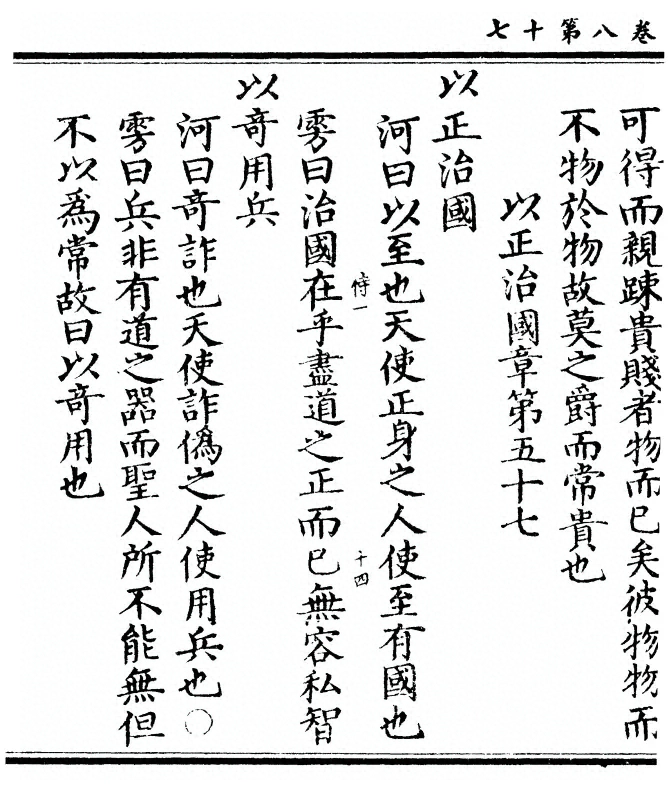 卷八第十七
可得而親踈貴賤者物而已矣彼物物而
不物於物故莫之爵而常貴也
以正治國章第五十七
以正治國
河曰以至也天使正身之人使至有國也
恃一
十四
雱曰治國在乎盡道之正而已無容私智
以竒用兵
河曰竒詐也天使詐僞之人使用兵也〇
雱曰兵非有道之器而聖人所不能無但
不以爲常故曰以竒用也